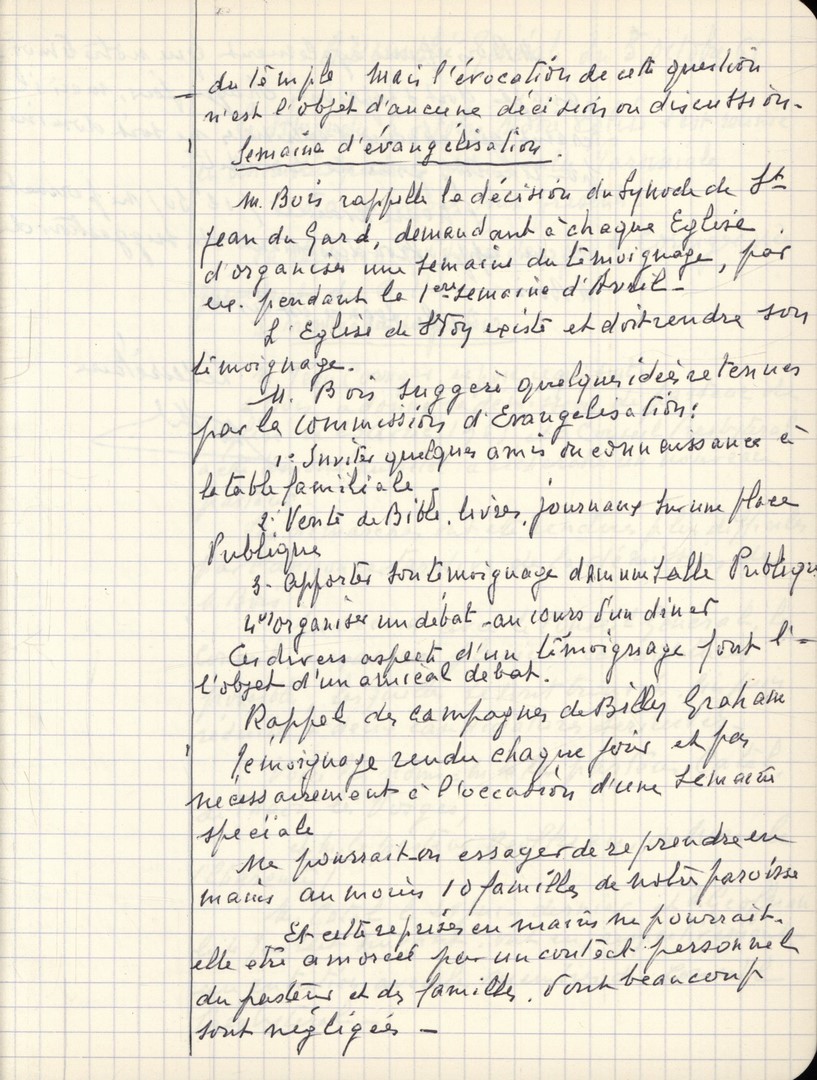 du temple mais l'évocation de cette question
n'est l'objet d'aucune décision ou discussion.
Semaine d'évangélisation.
M. Bois rappelle la décision du Synode de St
Jean du Gard, demandant à chaque Eglise
d'organiser une semaine du témoignage, par
ex. pendant la 1ere semaine d'Avril -
L'Eglise de St Voy existe et doit rendre son
témoignage.
M. Bois suggère quelques idées retenues
par la commission d'Evangélisation:
1° Inviter quelques amis ou connaissance à
la table familiale -
2° Vente de Bible, livres, journaux sur une place
Publique
3- apporter son témoignage dans une salle Publique
4° organiser un débat au cours d'un diner
Ces divers aspects d'un témoignage font l'-
l'objet d'un amical débat.
Rappel des campagnes de Billy Graham
Témoignage rendu chaque jour et pas
nécessairement à l'occasion d'une semaine
spéciale
Ne pourrait-on essayer de reprendre en
mains au moins 10 familles de notre paroisse
Et cette reprise en mains ne pourrait-
elle être amorcée par un contact personnel
du pasteur et des familles, dont beaucoup
sont négligées -